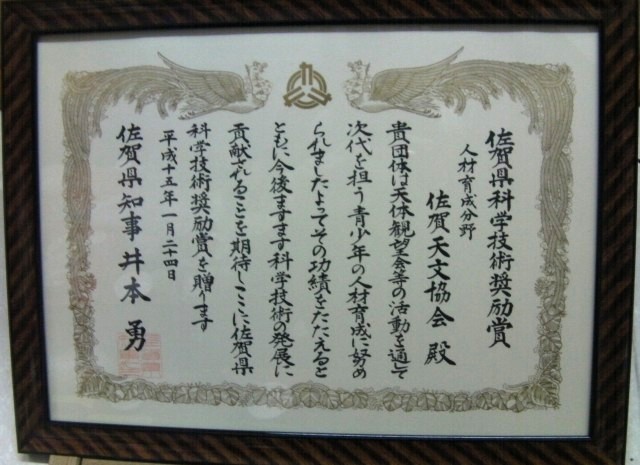 佐賀県科学技術奨励賞
人材育成分野
佐賀天文協会 殿
貴団体は天体観望会等の活動を通して
次代を担う青少年の人材育成に努め
られましたよってその功績をたたえると
ともに今後ますます科学技術の発展に
貢献されることを期待しここに佐賀県
科学技術奨励賞を贈ります
平成十五年一月二十四日
佐賀県知事 井本 勇